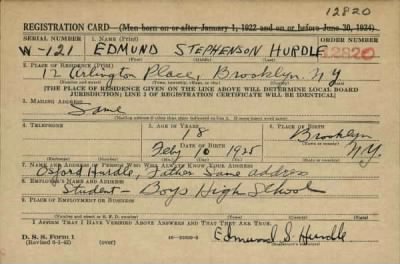 12820
REGISTRATION CARD—(Men born on or after January 1, 1922 and on or before June 30, 1924)
SERIAL NUMBER 1. NAME (Print) ORDER NUMBER
W-121 EDMUND STEPHENSON HURDLE 12820
(First) (Middle) (Last)
2. PLACE OF RESIDENCE (Print)
12 Arlington Place, Brooklyn, NY
(Number and street) (Town, township, village, or city) (County) (State)
[THE PLACE OF RESIDENCE GIVEN ON THE LINE ABOVE WILL DETERMINE LOCAL BOARD
JURISDICTION; LINE 2 OF REGISTRATION CERTIFICATE WILL BE IDENTICAL]
3. MAILING ADDRESS
Same
4. TELEPHONE 5. AGE IN YEARS 6. PLACE OF BIRTH
18 Brooklyn
DATE OF BIRTH
Feby 10 1925 N.Y.
(Exchange) (Number) (Mo.) (Day) (Yr.) (State or country)
7. NAME AND ADDRESS OF PERSON WHO WILL ALWAYS KNOW YOUR ADDRESS
Osford Hurdle, Father Same address
8. EMPLOYER'S NAME AND ADDRESS
Student - Boys High School
9. PLACE OF EMPLOYMENT OR BUSINESS
(Number and street or R. F. D. number) (Town) (County) (State)
I AFFIRM THAT I HAVE VERIFIED ABOVE ANSWERS AND THAT THEY ARE TRUE.
D. S. S. Form 1
(Revised 6-1-42) (over) Edmund S. Hurdle